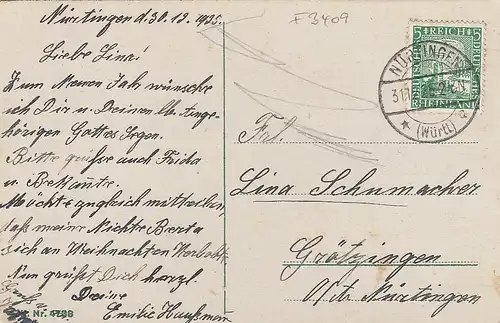 Nürtingen d. 30.12.1925.
F3409
Liebe Lina!
Zum Neuen Jahr wünsche
ich Dir u. Deinen lb. Ange-
hörigen Gottes Segen.
Bitte grüße auch Frida
u. Bekannte.
Möchte zugleich mitteilen,
daß meine Nichte Berta
sich an Weihnachten Verlobte
Nun grüßt Dich herzl.
Deine
Emilie
Nr. 4788
5 REICH 5
DEUTSCHES
RHEINLAND
NÜRTINGEN
(Württ)
Frl.
Lina Schumacher
Grötzingen
O/A Nürtingen